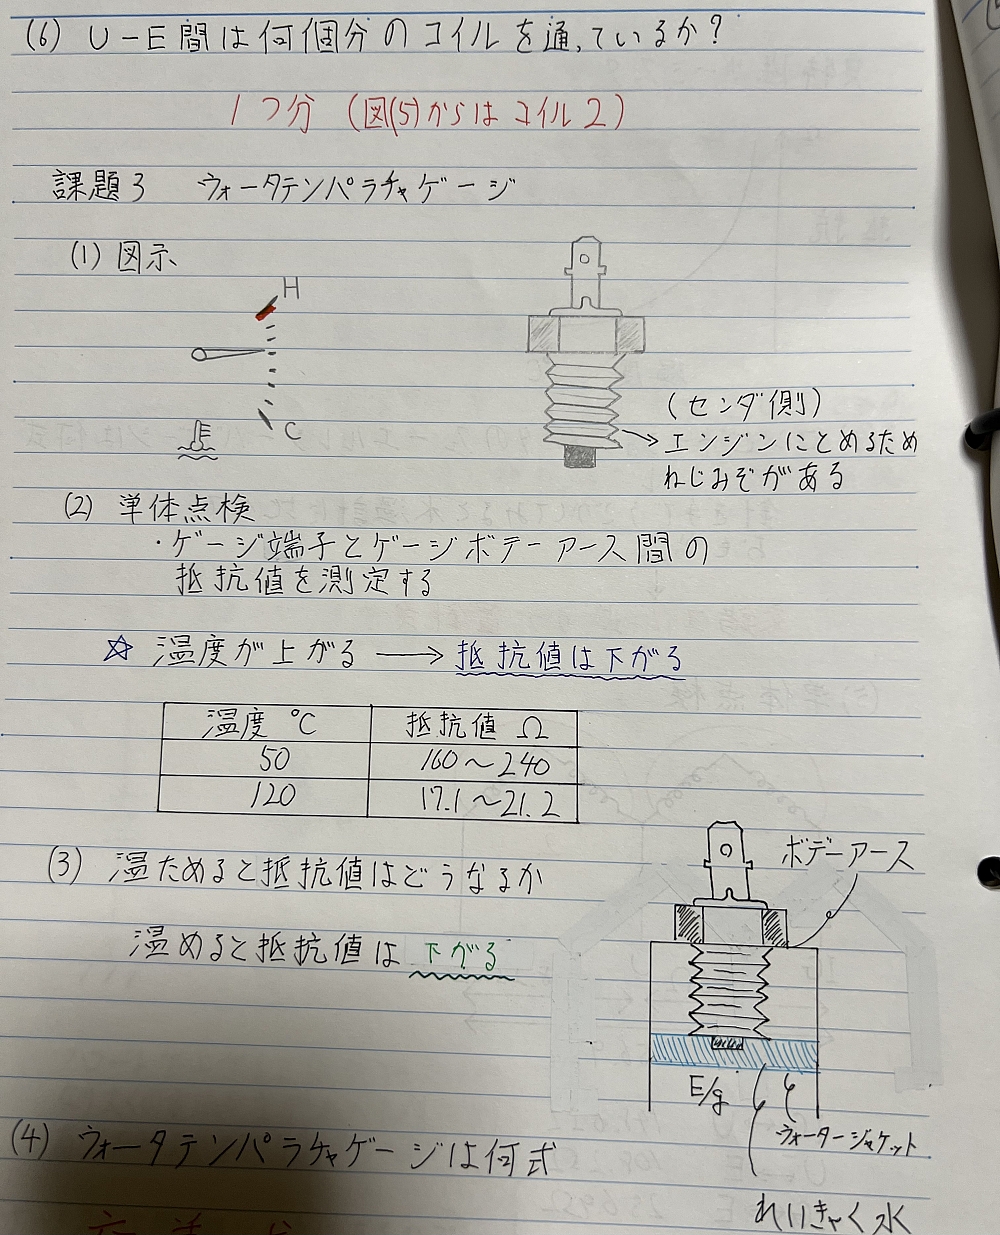 (6) U-E間は何個分のコイルを通っているか?
1つ分 (図(5)からはコイル2)
課題3 ウォータテンパラチャゲージ
(1) 図示
H
C
(センダ側)
エンジンにとめるため
ねじみぞがある
(2) 単体点検
・ゲージ端子とゲージボデーアース間の
抵抗値を測定する
☆ 温度が上がる → 抵抗値は下がる
温度 ℃ 抵抗値 Ω
50 160~240
120 17.1~21.2
(3) 温ためると抵抗値はどうなるか
ボデーアース
温めると抵抗値は 下がる
E/g
ウォータージャケット
れいきゃく水
(4) ウォータテンパラチャゲージは何式